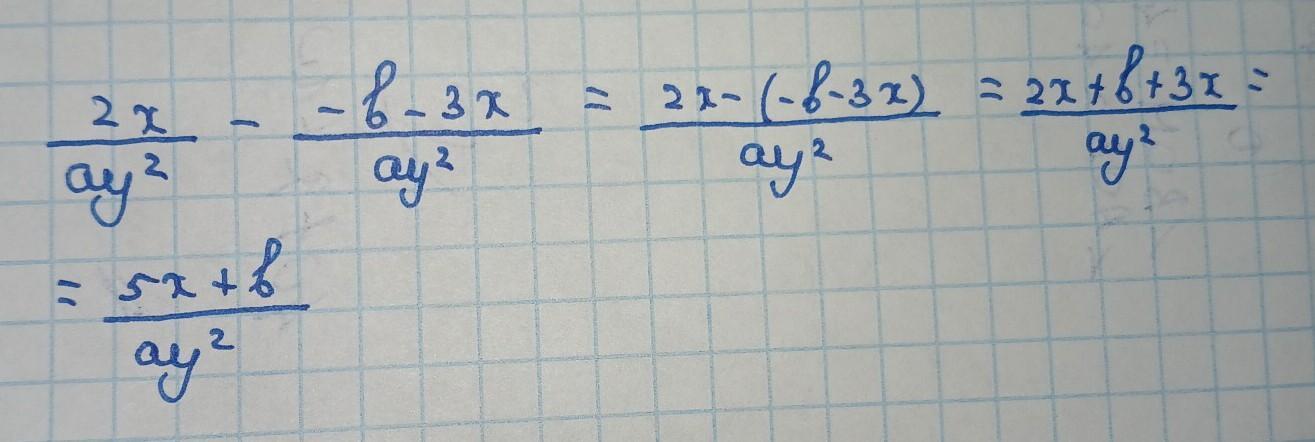 2x/ay² - (-b-3x)/ay² = (2x-(-b-3x))/ay² = (2x+b+3x)/ay² =
= (5x+b)/ay²